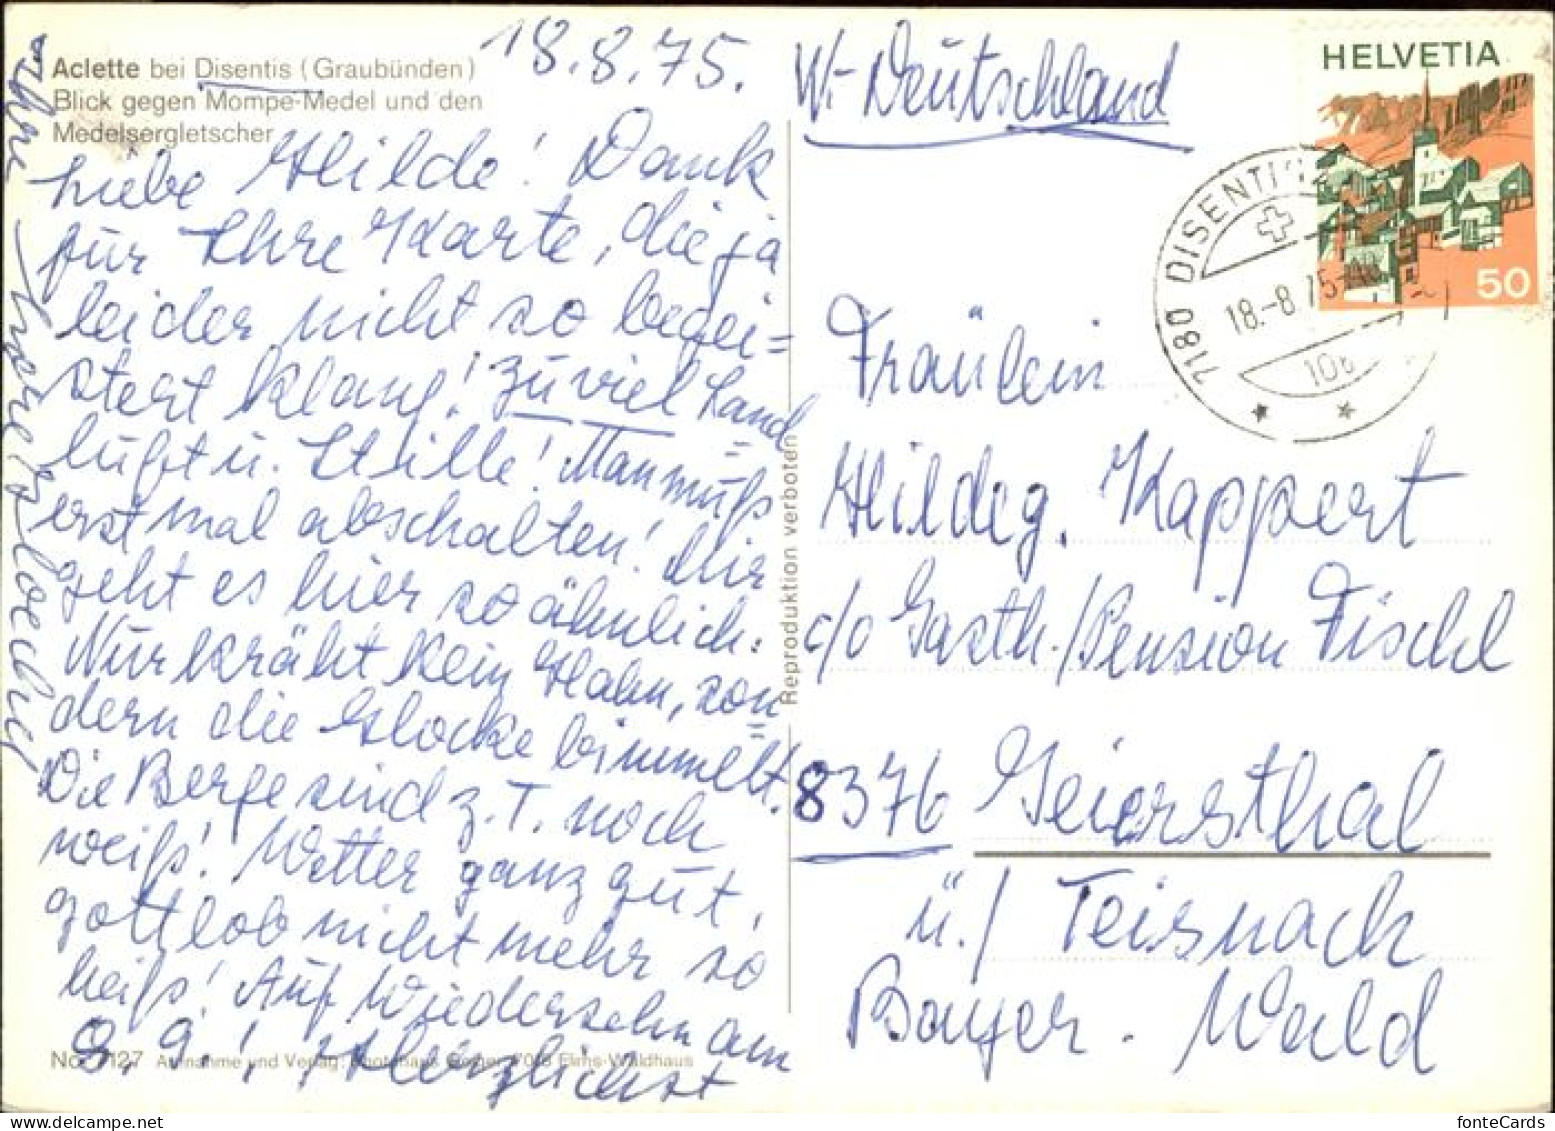 Aclette bei Disentis (Graubünden)
Blick gegen Mompe-Medel und den
Medelsergletscher
18.8.75.
Liebe Hilde! Dank
für Ihre Karte, die ja
leider nicht so begei=
stert klang! Zu viel Land=
luft u. Stille! Man muß
erst mal abschalten! Mir
geht es hier so ähnlich:
Nur kräht kein Hahn, son=
dern die Glocke bimmelt.
Die Berge sind z. T. noch
weiß! Wetter ganz gut,
gottlob nicht mehr so
heiß! Auf Wiedersehn am
9. 9.! Herzlichst
Ihre
No. 7127 Aufnahme und Verlag: Flims-Waldhaus
Reproduktion verboten
W.-Deutschland
HELVETIA
50
7180 DISENTIS
18.-8.75-
Fräulein
Hildeg. Kappert
c/o Gasth./Pension Fischl
8376 Geiersthal
ü./ Teisnach
Bayer. Wald
fonteCards